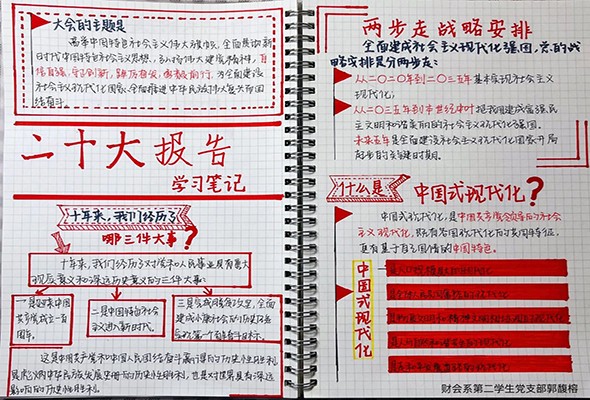 大会的主题是
高举中国特色社会主义伟大旗帜，全面贯彻新
时代中国特色社会主义思想，弘扬伟大建党精神，自
信自强、守正创新，踔厉奋发、勇毅前行，为全面建设
社会主义现代化国家、全面推进中华民族伟大复兴而团
结奋斗。
二十大报告
学习笔记
十年来，我们经历了
哪三件大事？
十年来，我们经历了对党和人民事业具有重大
现实意义和深远历史意义的三件大事：
一是迎来中国
共产党成立一百
周年。
二是中国特色社会
主义进入新时代。
三是完成脱贫攻坚、全面
建成小康社会的历史任务
实现第一个百年奋斗目标。
这是中国共产党和中国人民团结奋斗赢得的历史性胜利
是彪炳中华民族发展史册的历史性胜利，也是对世界具有深远
影响的历史性胜利。
两步走战略安排
全面建成社会主义现代化强国，总的战
略安排是分两步走：
从二〇二〇年到二〇三五年基本实现社会主义
现代化；
从二〇三五年到本世纪中叶把我国建成富强民
主文明和谐美丽的社会主义现代化强国。
未来五年是全面建设社会主义现代化国家开局
起步的关键时期。
什么是
中国式现代化？
中国式现代化，是中国共产党领导的社会
主义现代化，既有各国现代化的共同特征，
更有基于自己国情的中国特色。
中国式现代化
财会系第二学生党支部郭馥榕